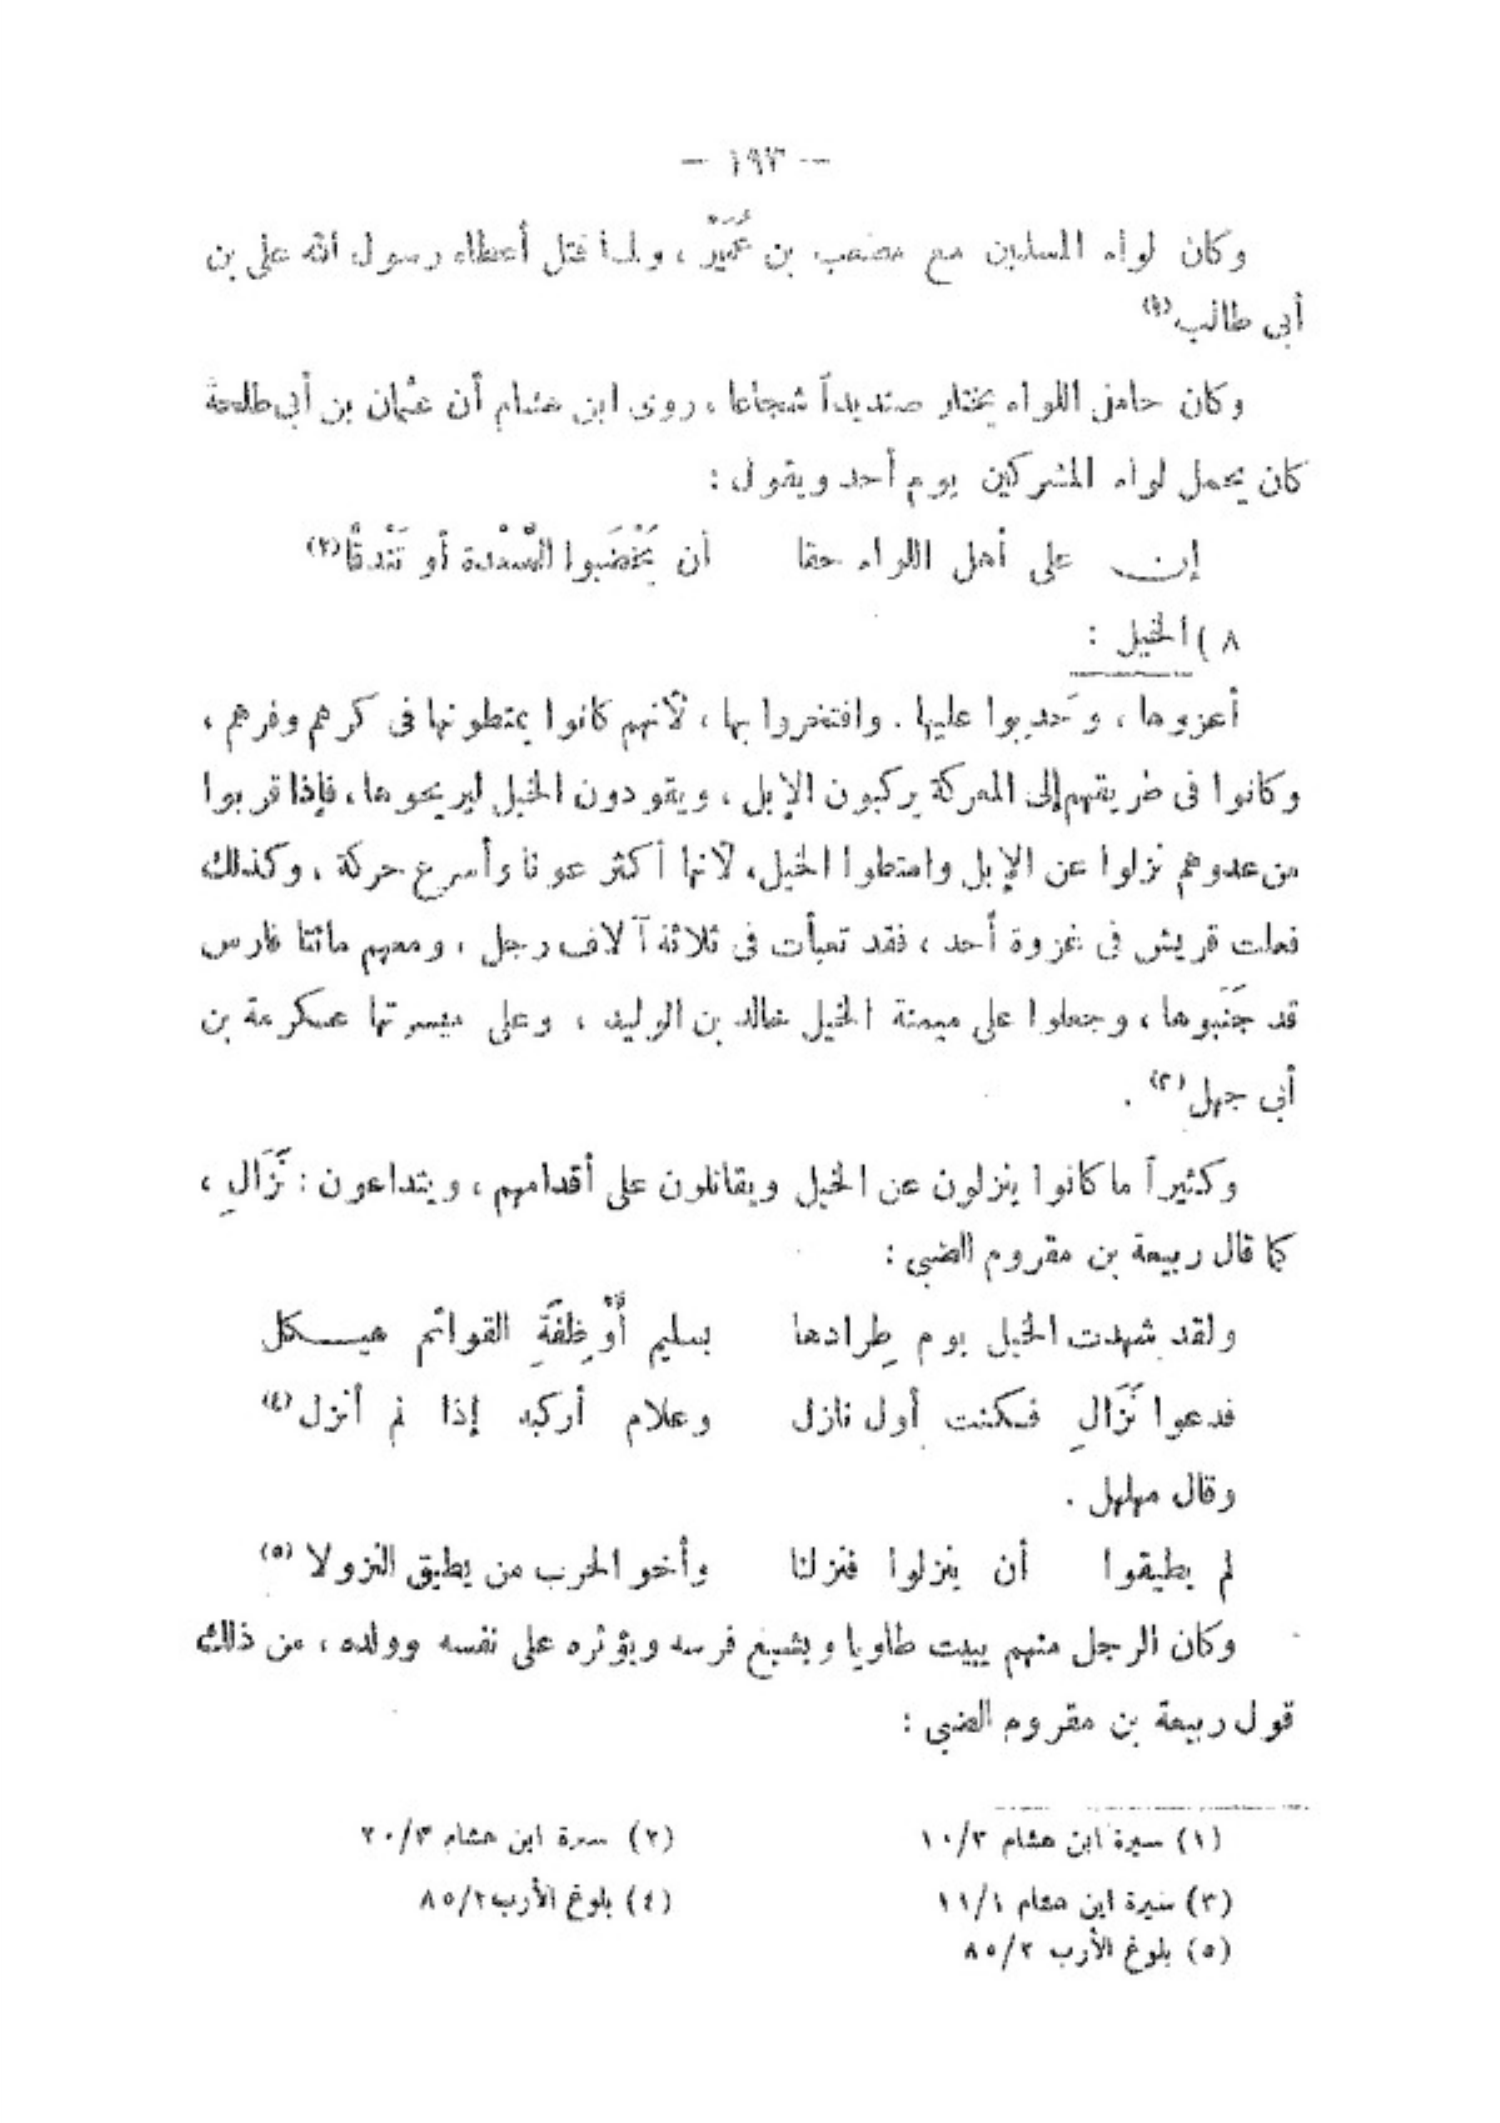 — ١٩٣ —
وكان لواء المسلمين مع مصعب بن عُمَيْر ، ولما قتل أعطاه رسول الله على بن
أبى طالب(١)
وكان حامل اللواء يختار صنديداً شجاعا ، روى ابن هشام أن عثمان بن أبى طلحة
كان يحمل لواء المشركين يوم أحد ويقول :
إن على أهل اللواء حقا أن يَخْضَبوا الصَّعْدة أو تَنْدقَّا(٢)
٨ ) الخيل :
أعزوها ، وحَدِبوا عليها . وافتخروا بها ، لأنهم كانوا يمتطونها فى كرهم وفرهم ،
وكانوا فى طريقهم إلى المعركة يركبون الإبل ، ويقودون الخيل ليريحوها ، فإذا قربوا
من عدوهم نزلوا عن الإبل وامتطوا الخيل ، لأنها أكثر عونا وأسرع حركة ، وكذلك
فعلت قريش فى غزوة أحد ، فقد تعبأت فى ثلاثة آلاف رجل ، ومعهم مائتا فارس
قد جَنَبوها ، وجعلوا على ميمنة الخيل خالد بن الوليد ، وعلى ميسرتها عكرمة بن
أبى جهل(٣) .
وكثيراً ما كانوا ينزلون عن الخيل ويقاتلون على أقدامهم ، ويتداعون : نَزَالِ ،
كما قال ربيعة بن مقروم الضبى :
ولقد شهدت الخيل يوم طِرادها بسليم أَوْظِفَةِ القوائم هيكل
فدعوا نَزَالِ فكنت أول نازل وعلام أركبه إذا لم أنزل(٤)
وقال مهلهل .
لم يطيقوا أن ينزلوا فنزلنا وأخو الحرب من يطيق النزولا(٥)
وكان الرجل منهم يبيت طاويا ويشبع فرسه ويؤثره على نفسه وولده ، من ذلك
قول ربيعة بن مقروم الضبى :
(١) سيرة ابن هشام ١٠/٣ (٢) سيرة ابن هشام ٢٠/٣
(٣) سيرة ابن هشام ١١/١ (٤) بلوغ الأرب ٨٥/٢
(٥) بلوغ الأرب ٨٥/٢